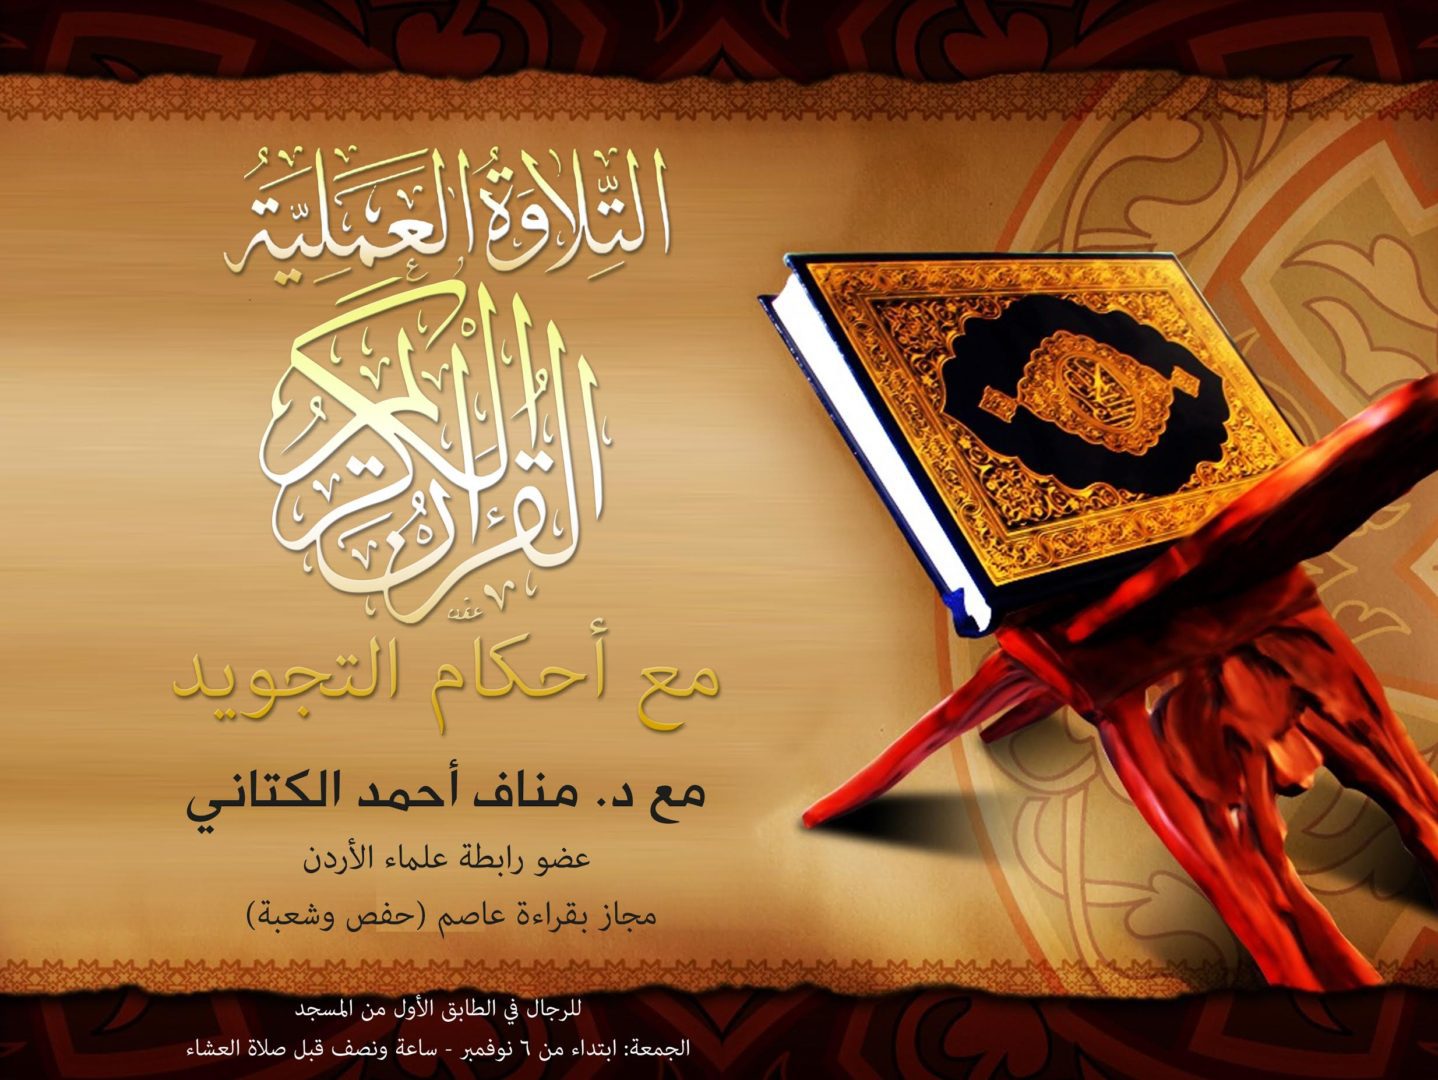 التِّلاوَةُ العَمَلِيَّةُ
القُرآن الكريم
مع أحكام التجويد
مع د. مناف أحمد الكتاني
عضو رابطة علماء الأردن
مجاز بقراءة عاصم (حفص وشعبة)
للرجال في الطابق الأول من المسجد
الجمعة: ابتداء من ٦ نوفمبر - ساعة ونصف قبل صلاة العشاء